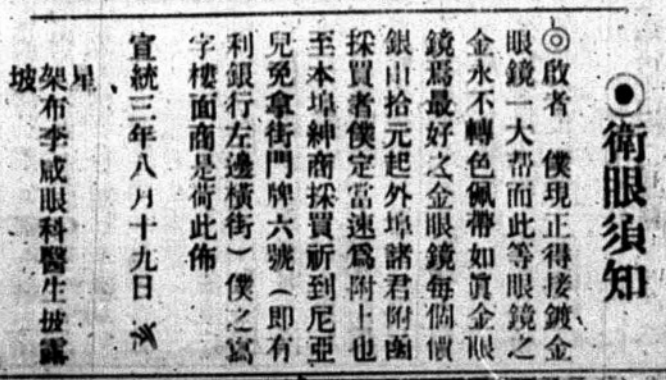 ◉衛眼須知
◎啟者 僕現正得接鍍金
眼鏡一大帮而此等眼鏡之
金永不轉色佩帶如眞金眼
鏡爲最好之金眼鏡每個價
銀由拾元起外埠諸君附函
採買者僕定當速爲附上也
至本埠紳商採買祈到尼亞
兒免拿街門牌六號(即有
利銀行左邊橫街)僕之寫
字樓面商是荷此佈
宣統三年八月十九日
星
架布李威眼科醫生披露
坡